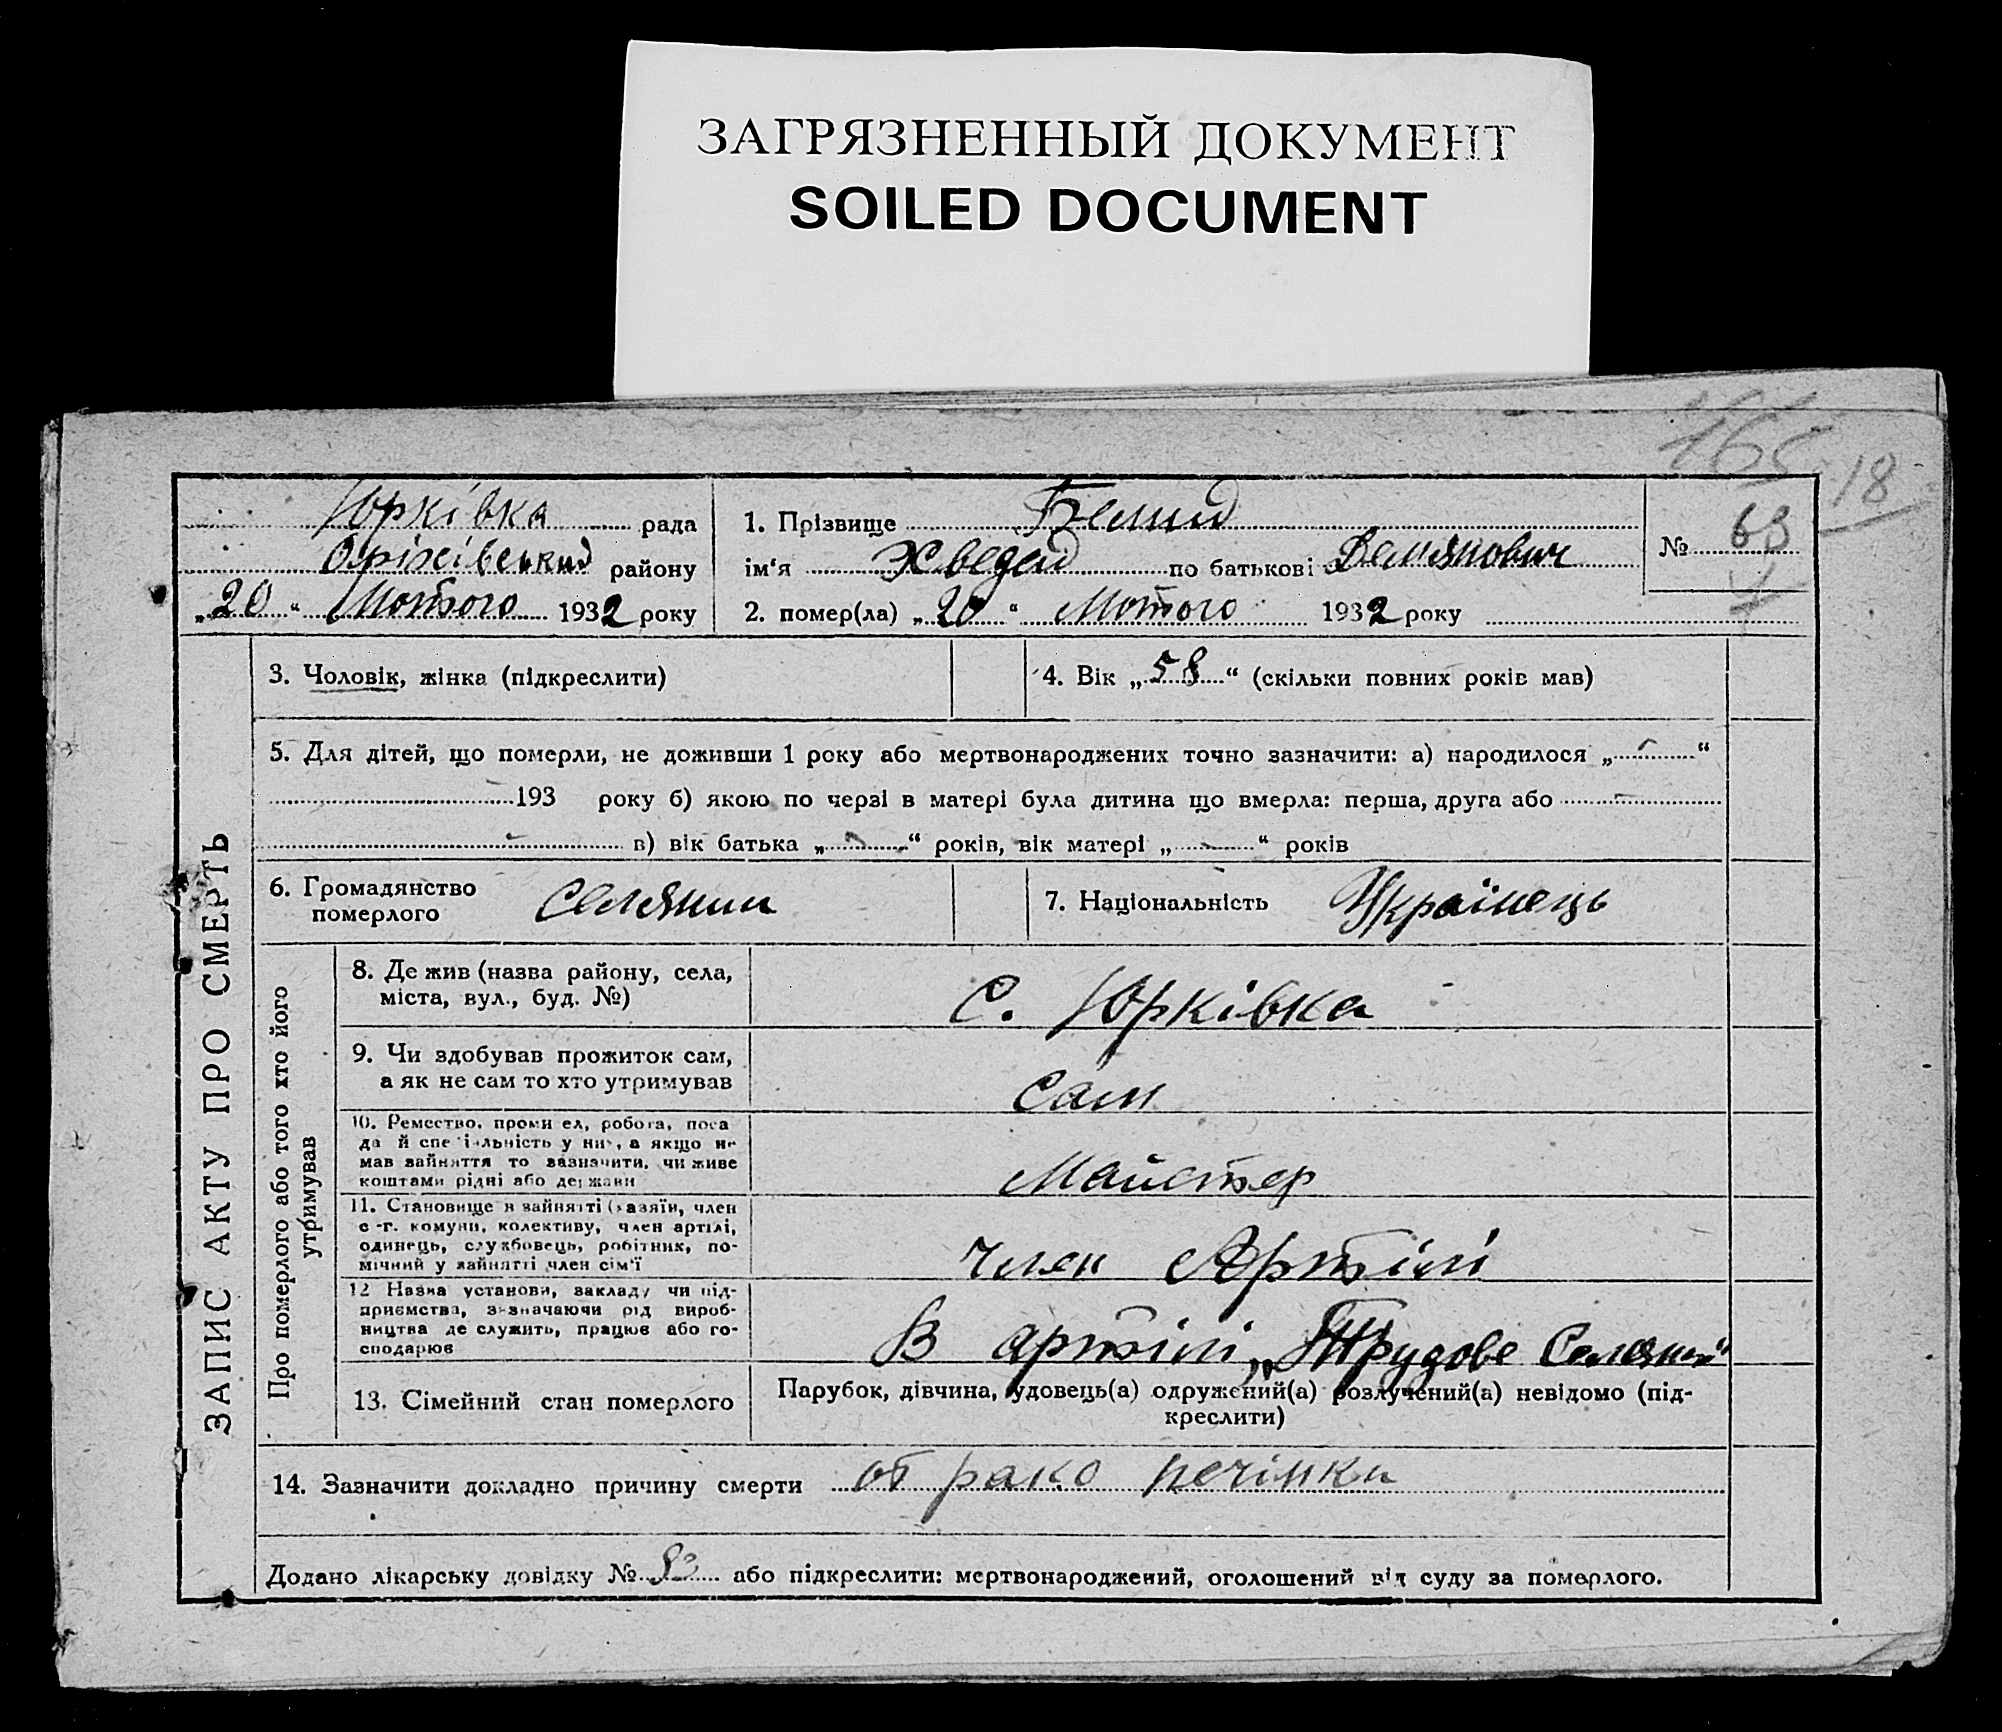 ЗАГРЯЗНЕННЫЙ ДОКУМЕНТ
SOILED DOCUMENT
165 18
Юрківка рада
Оріхівський району
„20“ Лютого 1932 року
1. Прізвище
ім'я Хведей по батькові Демянович
2. помер(ла) „20“ Лютого 1932 року
№ 63
ЗАПИС АКТУ ПРО СМЕРТЬ
3. Чоловік, жінка (підкреслити)
4. Вік „58“ (скільки повних років мав)
5. Для дітей, що померли, не доживши 1 року або мертвонароджених точно зазначити: а) народилося „ “
193 року б) якою по черзі в матері була дитина що вмерла: перша, друга або
в) вік батька „ “ років, вік матері „ “ років
6. Громадянство
померлого
селянин
7. Національність Українець
Про померлого або того хто його
утримував
8. Де жив (назва району, села,
міста, вул., буд. №)
с. Юрківка
9. Чи здобував прожиток сам,
а як не сам то хто утримував
сам
10. Ремество, промисел, робота, поса
да й спеціальність у них, а якщо не
мав зайняття то зазначити, чи живе
коштами рідні або держави
Майстер
11. Становище в зайнятті (хазяїн, член
с-г. комуни, колективу, член артілі,
одинець, службовець, робітник, по-
мічний у зайнятті член сім'ї
член Артілі
12 Назва установи, закладу чи під-
приємства, зазначаючи рід вироб-
ництва де служить, працює або го-
сподарює
В артілі „Трудове
13. Сімейний стан померлого
Парубок, дівчина, удовець(а) одружений(а) розлучений(а) невідомо (під-
креслити)
14. Зазначити докладно причину смерти от рако печінки
Додано лікарську довідку № або підкреслити: мертвонароджений, оголошений від суду за померлого.